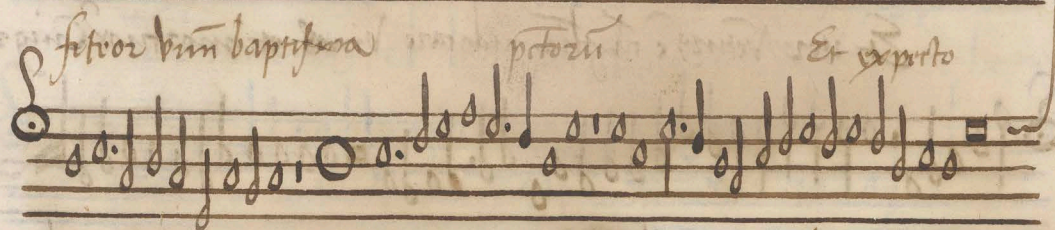 fiteor vnū baptisma pctorū Et expecto